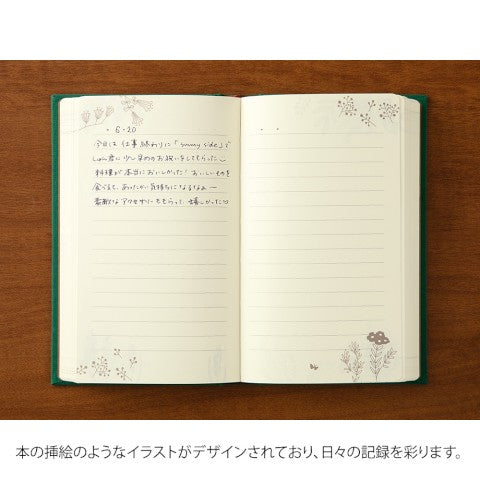 ・6・20
今日は仕事終わりに「sunny side」で
君に少し早めのお祝いをしてもらった
料理が本当においしかった! おいしいものを
食べると、あったかい気持ちになるなぁー
素敵なアクセサリーももらって嬉しかった♡
本の挿絵のようなイラストがデザインされており、日々の記録を彩ります。